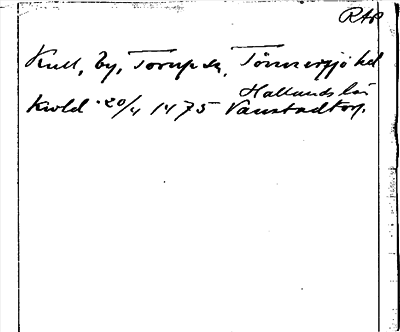 RAP
Kull, by, Torup sn, Tönnersjö hd
Hallands län
Kvold 20/4 1475 Vanstadtorp.